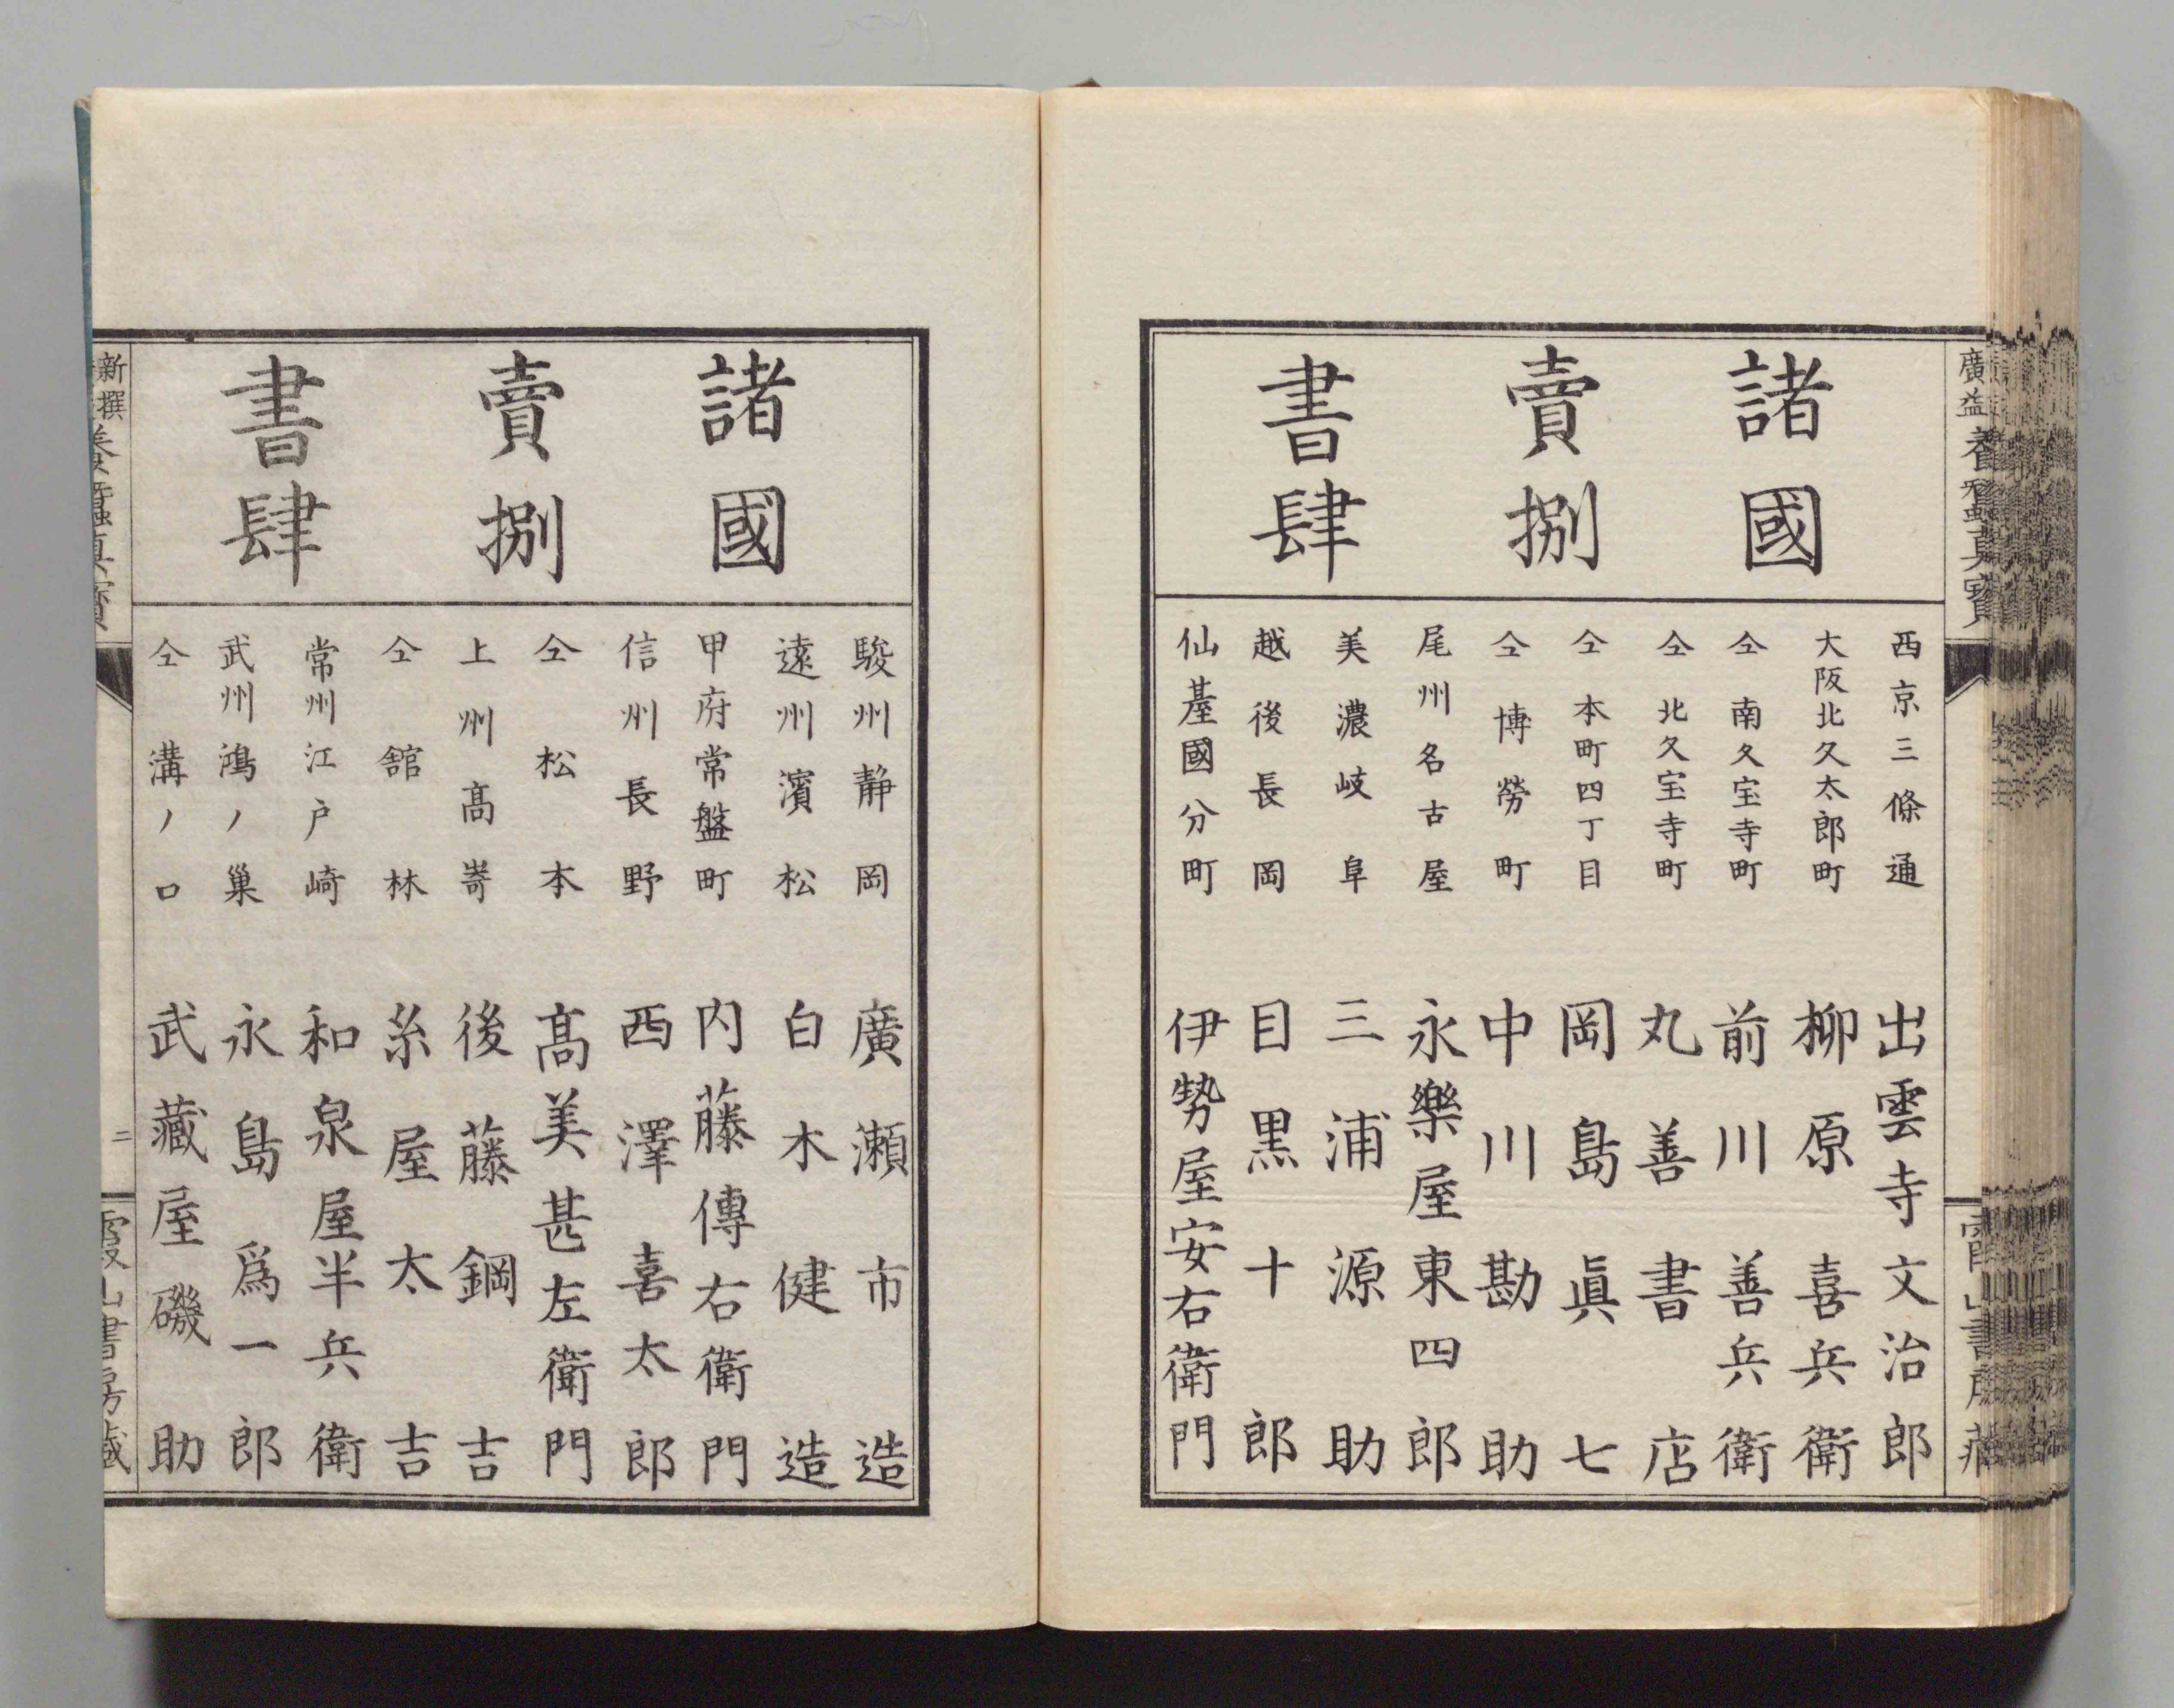 廣益養蠶真寶
諸國
賣捌
書肆
西京三條通 出雲寺文治郎
大阪北久太郎町 柳原喜兵衛
仝南久宝寺町 前川善兵衛
仝北久宝寺町 丸善書店
仝本町四丁目 岡島眞七
仝博勞町 中川勘助
尾州名古屋 永樂屋東四郎
美濃岐阜 三浦源助
越後長岡 目黒十郎
仙䑓國分町 伊勢屋安右衛門
諸國
賣捌
書肆
駿州静岡 廣瀬市造
遠州濱松 白木健造
甲府常盤町 内藤傳右衛門
信州長野 西澤喜太郎
仝松本 髙美甚左衛門
上州髙嵜 後藤鋼吉
仝舘林 糸屋太吉
常州江戸崎 和泉屋半兵衛
武州鴻ノ巣 永島爲一郎
仝溝ノ口 武藏屋磯助
新撰養蠶真寶
二
霞山書房藏